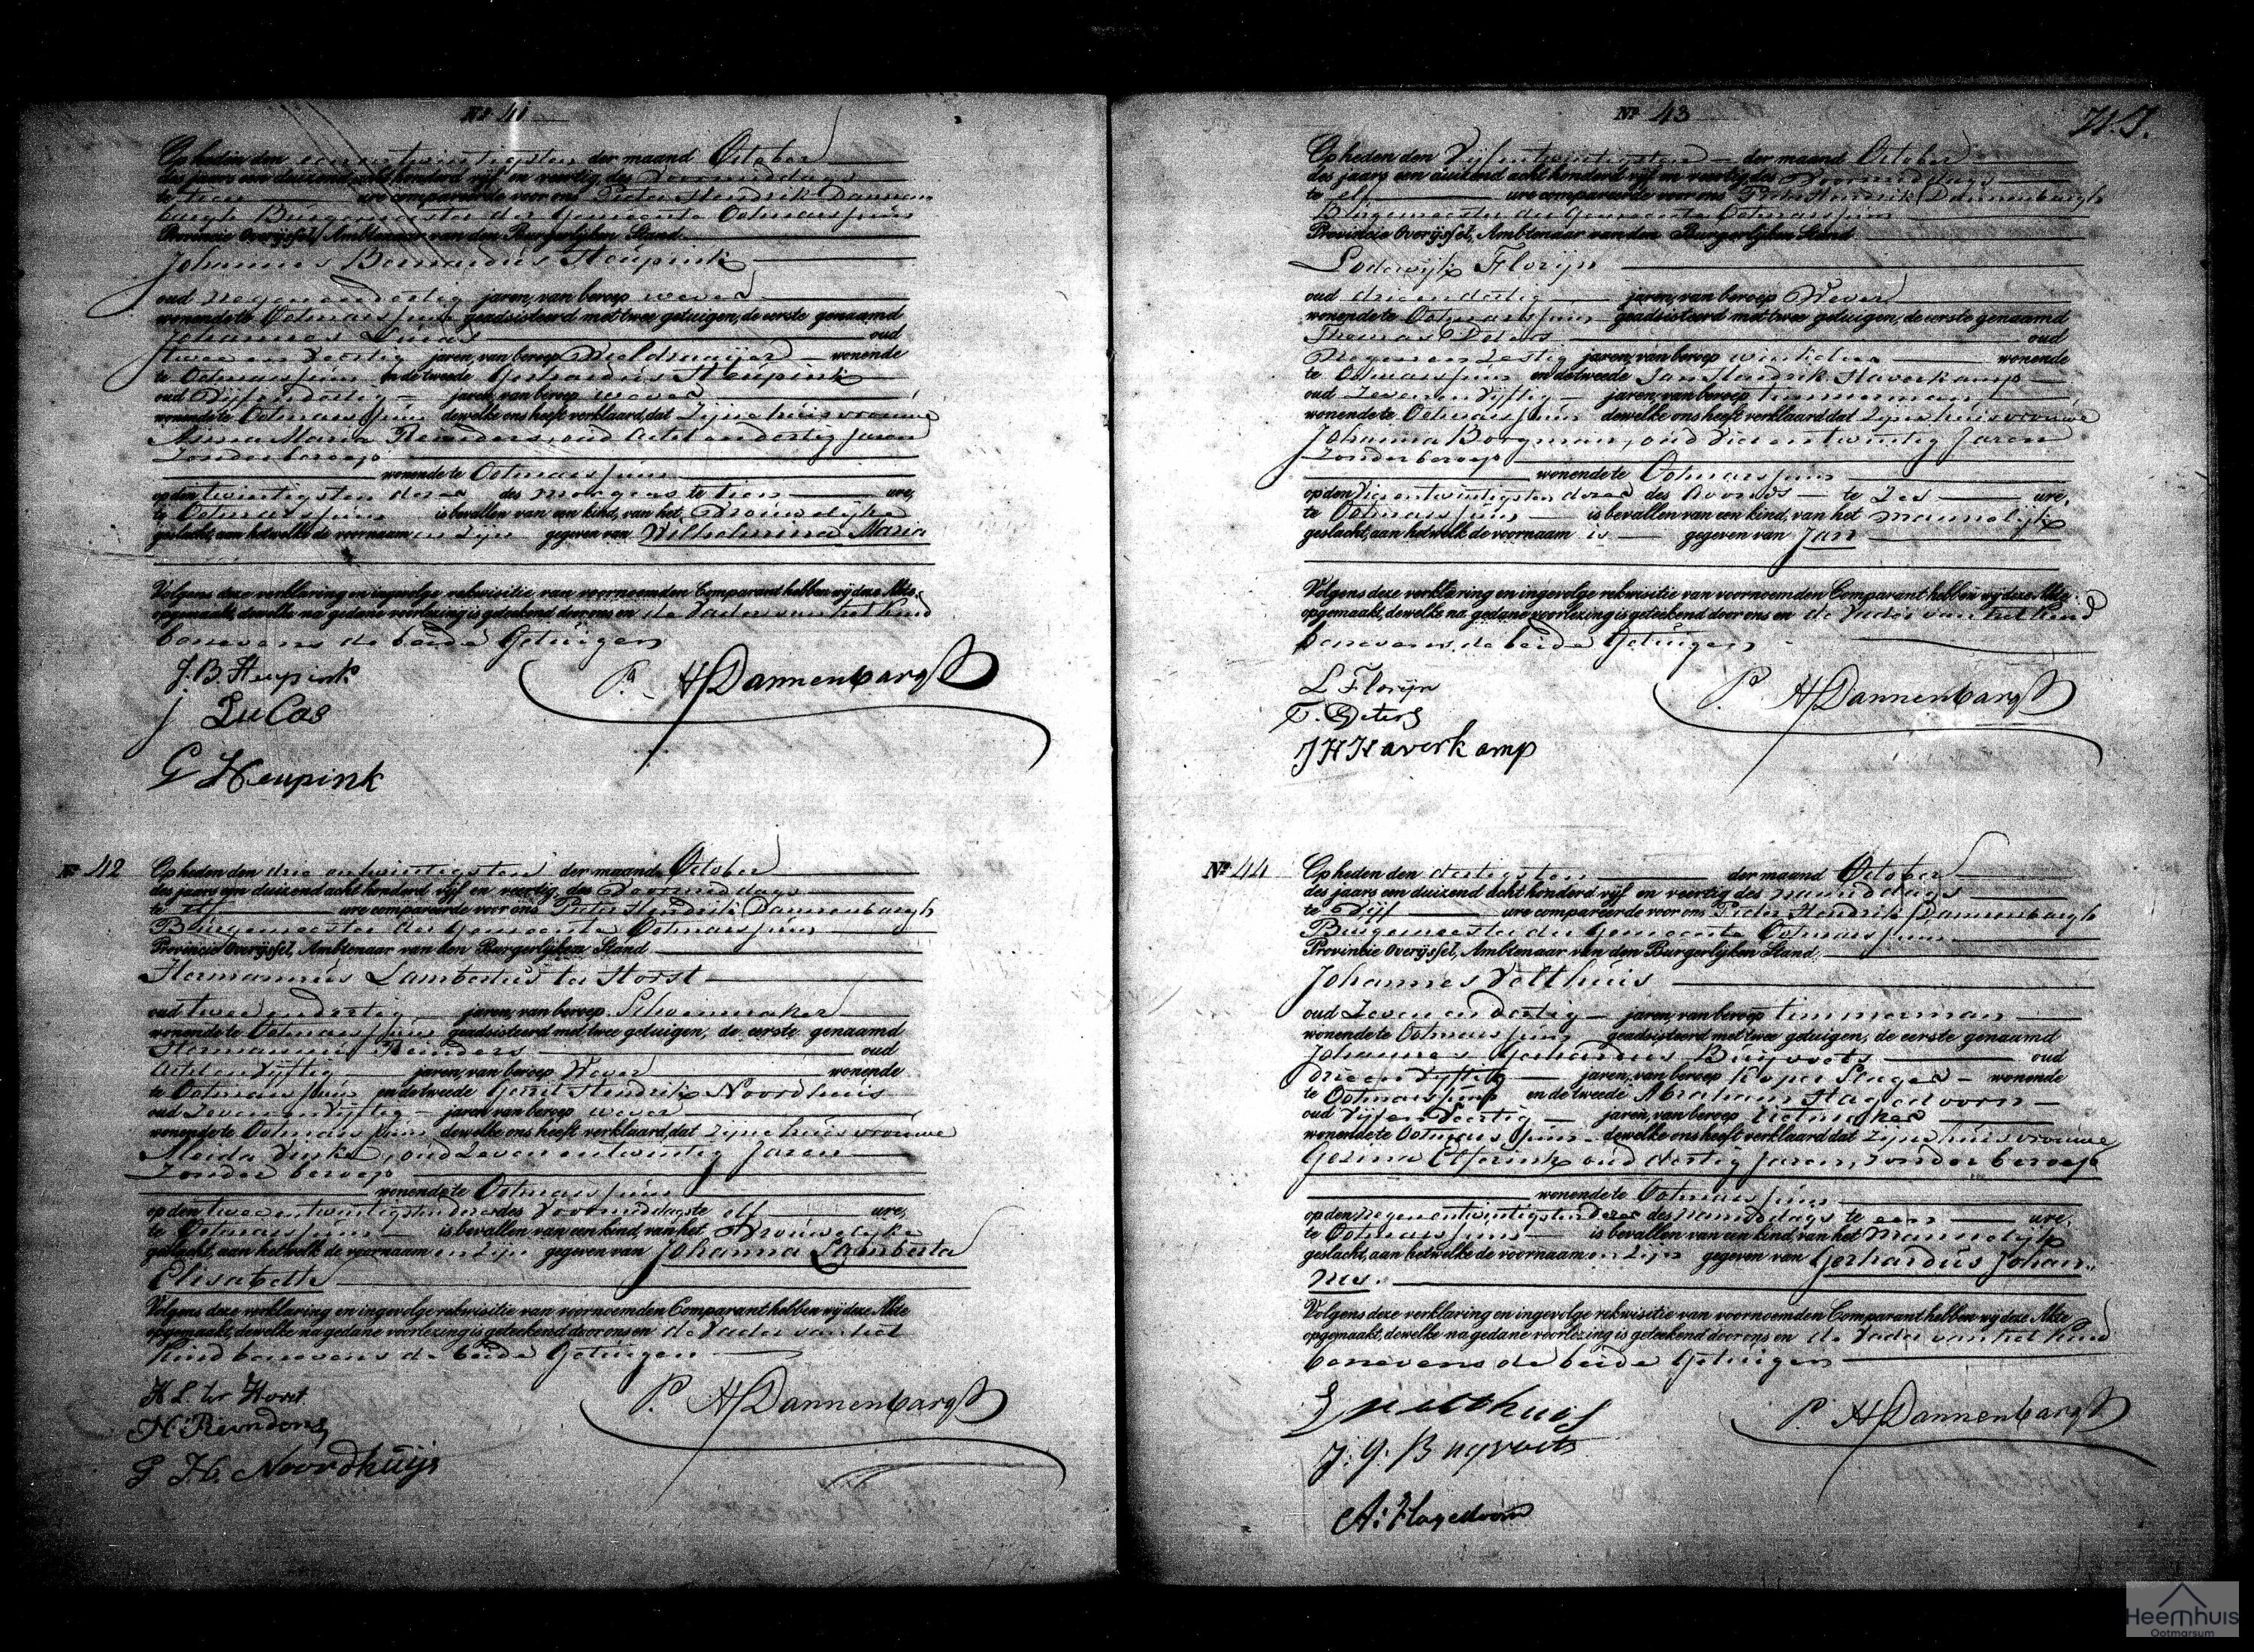 No 41
Op heden den eenentwintigsten der maand October
des jaars een duizend acht honderd vijf en veertig, des Voormiddags
te tien ure compareerde voor ons Pieter Hendrik Dannen
bargh Burgemeester der Gemeente Ootmarssum
Provincie Overijssel, Ambtenaar van den Burgerlijken Stand
Johannes Bernardus Heupink
oud negenendertig jaren, van beroep wever
wonende te Ootmarssum geadsisteerd met twee getuigen, de eerste genaamd
Johannes Lucas oud
twee en veertig jaren, van beroep wonende
te Ootmarssum en de tweede Gerhardus Heupink
oud Vijfendertig jaren, van beroep wever
wonende te Ootmarssum dewelke ons heeft verklaard, dat Zijne huisvrouwe
Anna Maria Reinders, oud Achtendertig Jaren
Zonder beroep
wonende te Ootmarssum
op den twintigsten dezer des morgens te tien ure,
te Ootmarssum is bevallen van een kind, van het Vrouwelijke
geslacht, aan hetwelk de voornaam en Zijn gegeven van Wilhelmina Maria
Volgens deze verklaring en ingevolge rekwisitie van voornoemden Comparant hebben wij deze Akte
opgemaakt, dewelke na gedane voorlezing is geteekend door ons en de Vader van het kind
benevens de beide Getuigen
J. B. Heupink P. H Dannenbargh
J Lucas
G Heupink
No 42
Op heden den drie entwintigsten der maand October
des jaars een duizend acht honderd vijf en veertig, des Voormiddags
te elf ure compareerde voor ons Pieter Hendrik Dannenbargh
Burgemeester der Gemeente Ootmarssum
Provincie Overijssel, Ambtenaar van den Burgerlijken Stand
Hermannus Lambertus ter Horst
oud tweeendertig jaren, van beroep Schoenmaker
wonende te Ootmarssum geadsisteerd met twee getuigen, de eerste genaamd
Hermannus Reinders oud
Achtenvijftig jaren, van beroep Wever wonende
te Ootmarssum en de tweede Gerrit Hendrik Noordhuis
oud Zevenenvijftig jaren, van beroep wever
wonende te Ootmarssum dewelke ons heeft verklaard, dat Zijne huisvrouwe
oud Zevenentwintig Jaren
Zonder beroep
wonende te Ootmarssum
op den tweeentwintigsten dezer des Voormiddags te elf ure,
te Ootmarssum is bevallen van een kind, van het Vrouwelijke
geslacht, aan hetwelk de voornaam en Zijn gegeven van Johanna Lamberta
Elisabeth
Volgens deze verklaring en ingevolge rekwisitie van voornoemden Comparant hebben wij deze Akte
opgemaakt, dewelke na gedane voorlezing is geteekend door ons en de Vader van het
Kind benevens de beide Getuigen
H L. ter Horst P. H Dannenbargh
H. Reinders
G H. Noordhuijs
No 43
Op heden den Vijfentwintigsten der maand October
des jaars een duizend acht honderd vijf en veertig des Voormiddags
te elf ure compareerde voor ons Pieter Hendrik Dannenbargh
Burgemeester der Gemeente Ootmarssum
Provincie Overijssel, Ambtenaar van den Burgerlijken Stand
Lodewijk Florijn
oud drieendertig jaren, van beroep Wever
wonende te Ootmarssum geadsisteerd met twee getuigen, de eerste genaamd
Thomas Peters oud
Negenenzestig jaren, van beroep wonende
te Ootmarssum en de tweede Jan Hendrik Haverkamp
oud Zevenenvijftig jaren, van beroep timmerman
wonende te Ootmarssum dewelke ons heeft verklaard dat zijne huisvrouwe
Johanna Borgman, oud Vierentwintig Jaren
Zonder beroep
wonende te Ootmarssum
op den Vierentwintigsten dezer des Avonds te Zes ure,
te Ootmarssum is bevallen van een kind, van het mannelijk
geslacht, aan hetwelk de voornaam is gegeven van Jan
Volgens deze verklaring en ingevolge rekwisitie van voornoemden Comparant hebben wij deze Akte
opgemaakt, dewelke na gedane voorlezing is geteekend door ons en de Vader van het Kind
benevens de beide Getuigen
L Florijn P. H Dannenbargh
T. Peters
J H Haverkamp
No 44
Op heden den dertigsten der maand October
des jaars een duizend acht honderd vijf en veertig des namiddags
te Vijf ure compareerde voor ons Pieter Hendrik Dannenbargh
Burgemeester der Gemeente Ootmarssum
Provincie Overijssel, Ambtenaar van den Burgerlijken Stand
Johannes Velthuis
oud Zevenendertig jaren, van beroep timmerman
wonende te Ootmarssum geadsisteerd met twee getuigen, de eerste genaamd
Johannes Gerhardus Buijvoets oud
drieenvijftig jaren, van beroep Koper Slager wonende
te Ootmarssum en de tweede Abraham Hagedoorn
oud Vijfenveertig jaren, van beroep
wonende te Ootmarssum dewelke ons heeft verklaard dat zijne huisvrouwe
Gezina Elferink oud dertig Jaren, zonder beroep
wonende te Ootmarssum
op den negenentwintigsten dezer des namiddags te een ure,
te Ootmarssum is bevallen van een kind, van het Mannelijk
geslacht, aan hetwelk de voornaam en Zijn gegeven van Gerhardus Johan
nes.
Volgens deze verklaring en ingevolge rekwisitie van voornoemden Comparant hebben wij deze Akte
opgemaakt, dewelke na gedane voorlezing is geteekend door ons en de Vader van het Kind
benevens de beide Getuigen
J Velthuis P. H Dannenbargh
J. G. Buyvoets
A. Hagedoorn
Heemhuis
Ootmarsum